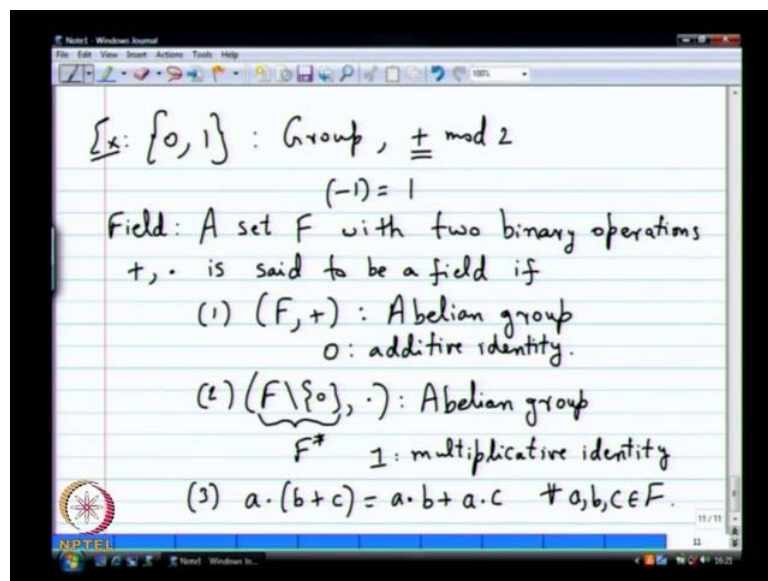 Note1 - Windows Journal
File Edit View Insert Actions Tools Help
100%
Ex: {0, 1} : Group, + mod 2
(-1) = 1
Field: A set F with two binary operations
+, · is said to be a field if
(1) (F, +) : Abelian group
0 : additive identity.
(2) (F\{0}, ·) : Abelian group
F* 1 : multiplicative identity
(3) a · (b + c) = a · b + a · c ∀ a, b, c ∈ F.
11 / 11
11
NPTEL
Note1 - Windows Jo...
16:21